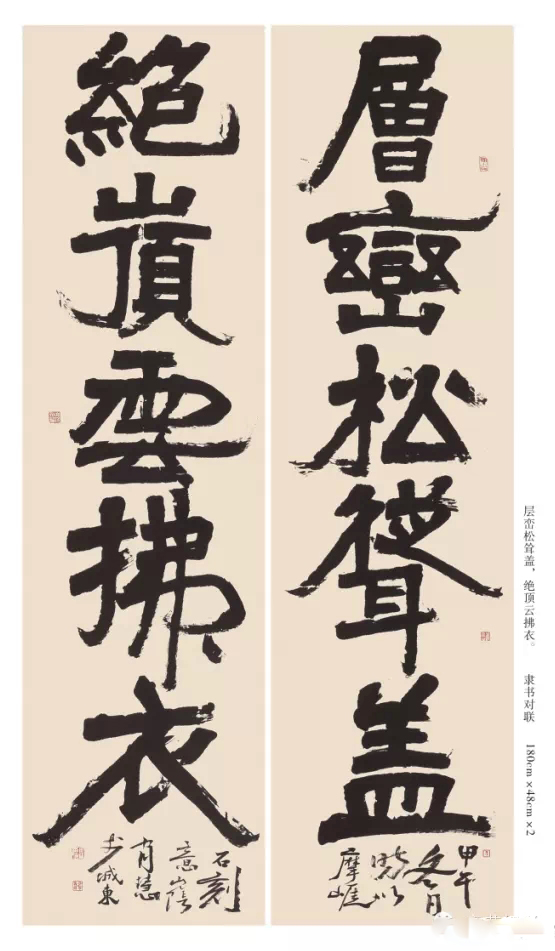 層巒松聳盖
甲午
冬月
以
摩崖
絶頂雲拂衣
石刻
意
肖慧
城東
层峦松耸盖，绝顶云拂衣。 隶书对联 180cm×48cm×2